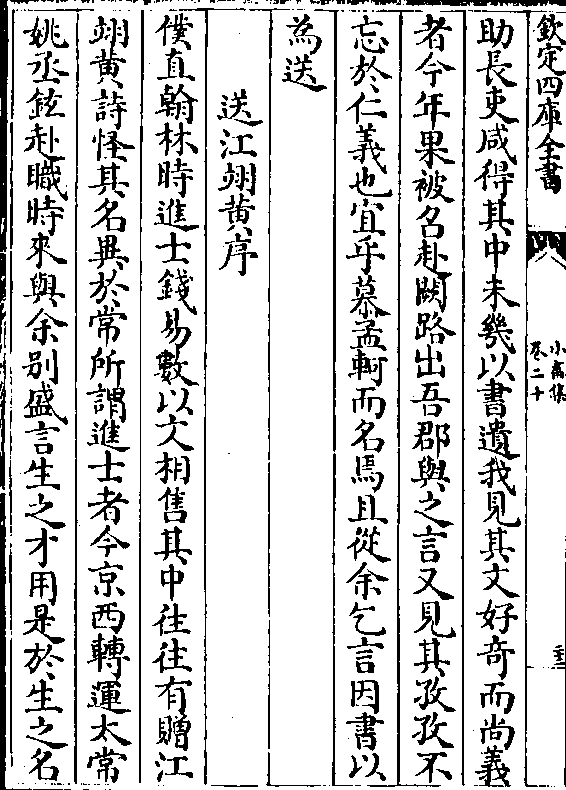 欽定四庫全書
小畜集
卷二十
助長吏咸得其中未幾以書遺我見其文好奇而尚義
者今年果被名赴闕路出吾郡與之言又見其孜孜不
忘於仁義也宜乎慕孟軻而名焉且從余乞言因書以
為送
送江翊黃序
僕直翰林時進士錢易數以文相售其中往往有贈江
翊黃詩怪其名異於常所謂進士者今京西轉運太常
姚丞鉉赴職時來與余別盛言生之才用是於生之名